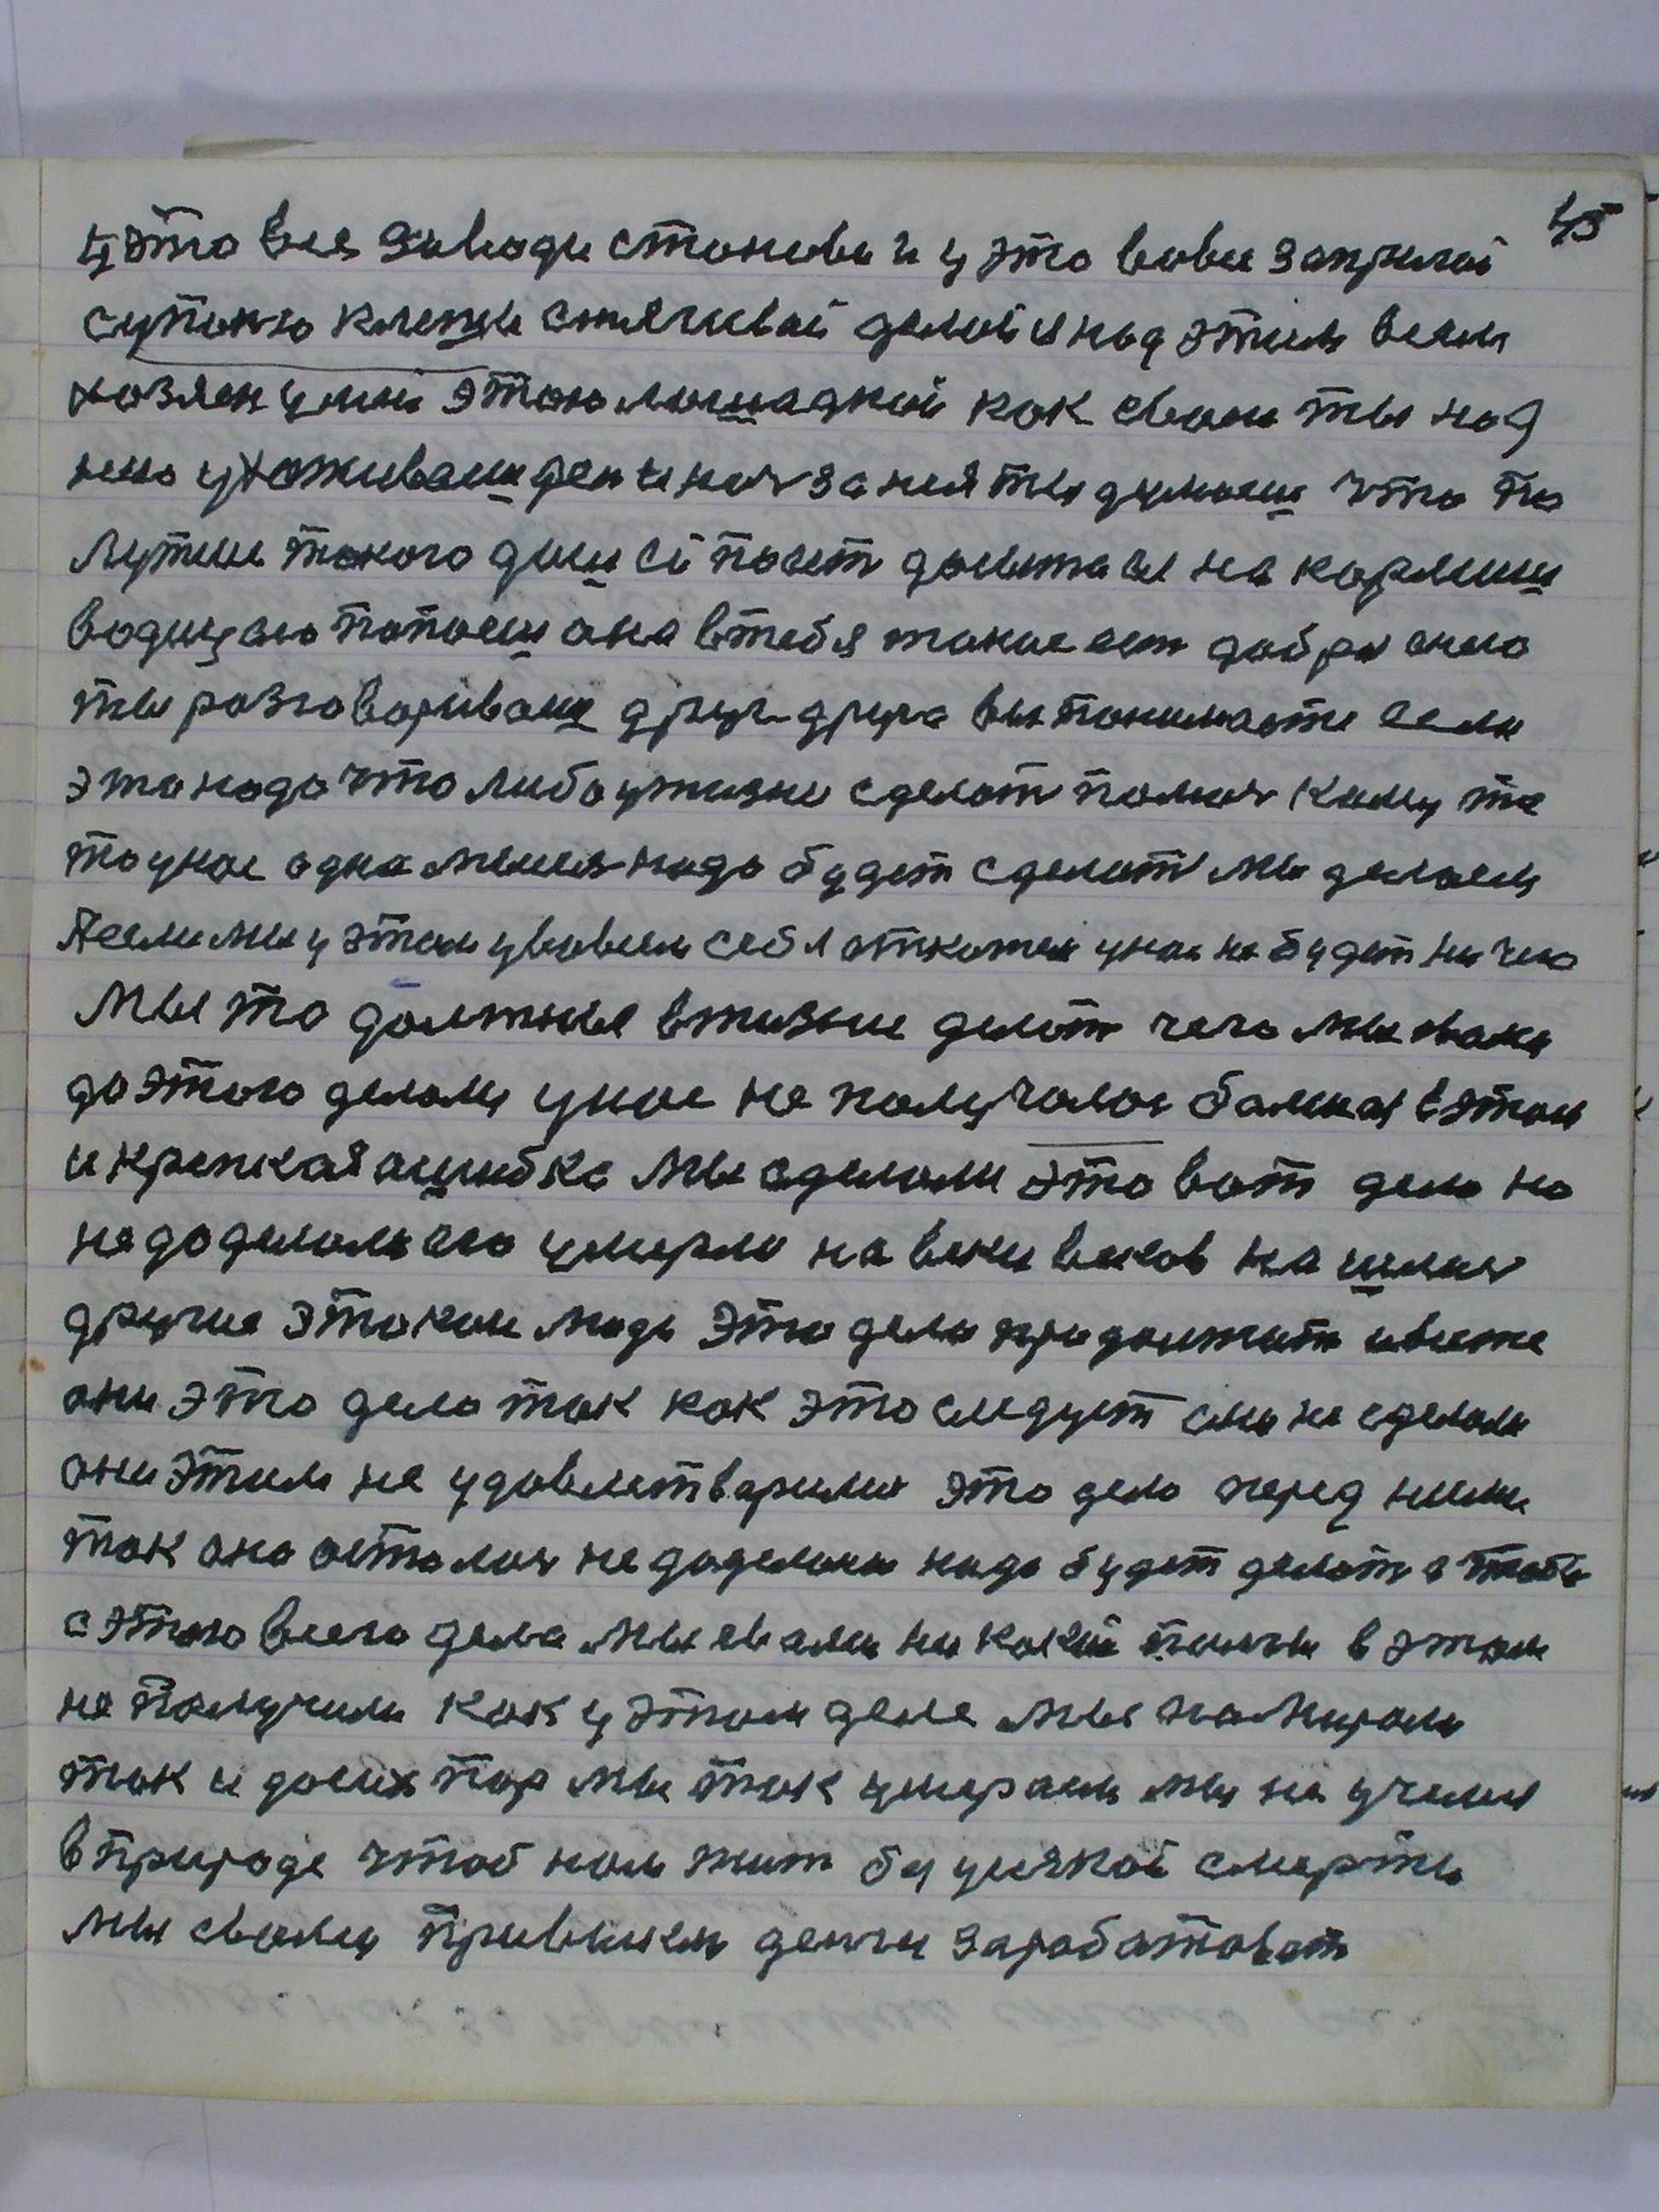 45
у это все заводи станови и у это вови запрягай
супоню клещи стягивай делай и над этим всем
хозяен умий этою лошадкой как свои ты над
нею ухаживаеш ден и ноч за нея ты думаеш что ты
лутше такого
водицею попоеш она в тебя такие ест добра снею
ты разговариваеш друг друга вы понимаете если
это надо что либо у жизни сделат помоч кому то
то у нас одна мысля надо будет сделат мы делаем
А если мы у этом у вовсем себя откажем у нас не будет ни чего
Мы то должные в жизни делат чего мы свами
до этого делали у нас не получалос балшая в этом
и крепкая ошибка мы сделали это вот дело но
не доделали его умерли на веки веков нашлис
другие этакои люди это дело продолжат
они это дело так как это следует не сделали
они этим не удовлетварилис это дело перед ними
так оно осталос не доделаны надо будет делат а чтобы
с этого всего дела мы свами ни какой ползы в этом
не получили как у этом деле мы помирали
так и до сих пор мы так умераем мы не училис
в природе чтоб нам жит без усякой смерти
мы свами привыкли денги зарабатоват